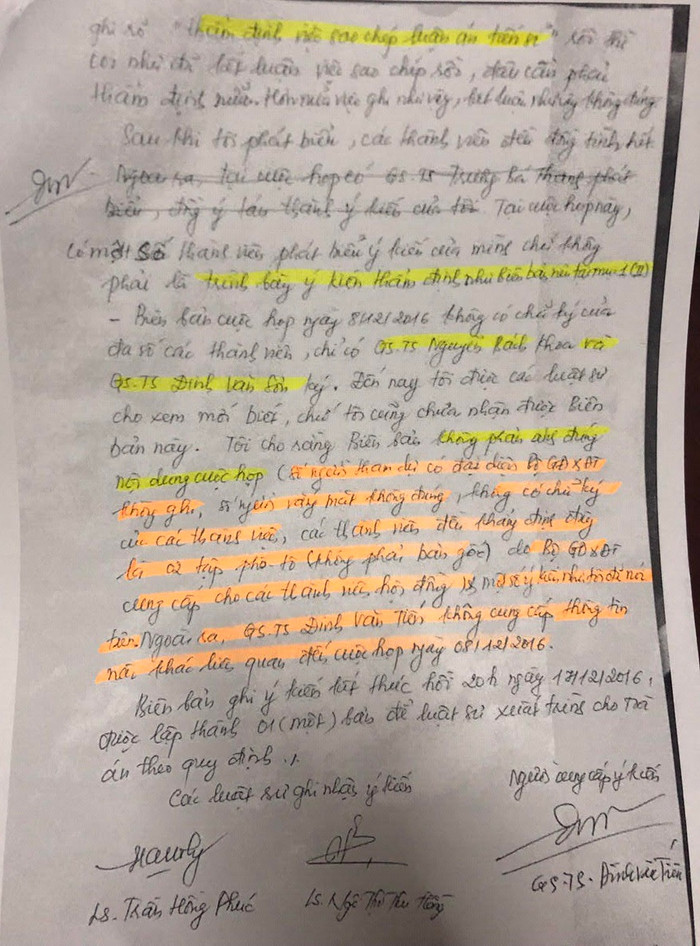 ghi rõ "thẩm định việc sao chép luận án tiến sĩ" rồi thì
coi như đã kết luận việc sao chép rồi, đâu cần phải
thẩm định nữa. Hơn nữa việc ghi như vậy, kết luận như vậy không đúng
Sau khi tôi phát biểu, các thành viên đều đồng tình hết.
Ngoài ra, tại cuộc họp có GS.TS Trương Bá Thanh phát
biểu, đồng ý tán thành ý kiến của tôi. Tại cuộc họp này,
có một số thành viên phát biểu ý kiến của mình chứ không
phải là trình bày ý kiến thẩm định như Biên bản nêu tại mục 1 (II)
- Biên bản cuộc họp ngày 8/12/2016 không có chữ ký của
đa số các thành viên, chỉ có GS.TS Nguyễn Bách Khoa và
GS.TS Đinh Văn Sơn ký. Đến nay tôi được các luật sư
cho xem mới biết, chứ tôi cũng chưa nhận được Biên
bản này. Tôi cho rằng Biên bản không phản ánh đúng
nội dung cuộc họp (số người tham dự có đại diện Bộ GD&ĐT
không ghi, số người vắng mặt không đúng, không có chữ ký
của các thành viên, các thành viên đều khẳng định đây
là 02 tập phô tô (không phải bản gốc) do Bộ GD&ĐT
cung cấp cho các thành viên hội đồng và một số ý kiến như tôi đã nói
trên. Ngoài ra, GS.TS Đinh Văn Tiến không cung cấp thông tin
nào khác liên quan đến cuộc họp ngày 08/12/2016.
Biên bản ghi ý kiến kết thúc hồi 20h ngày 17/12/2016,
được lập thành 01 (một) bản để luật sư xuất trình cho Toà
án theo quy định./.
Các luật sư ghi nhận ý kiến
Người cung cấp ý kiến
Ls. Trần Hồng Phúc
Ls. Ngô Thị Thu Hằng
GS.TS. Đinh Văn Tiến